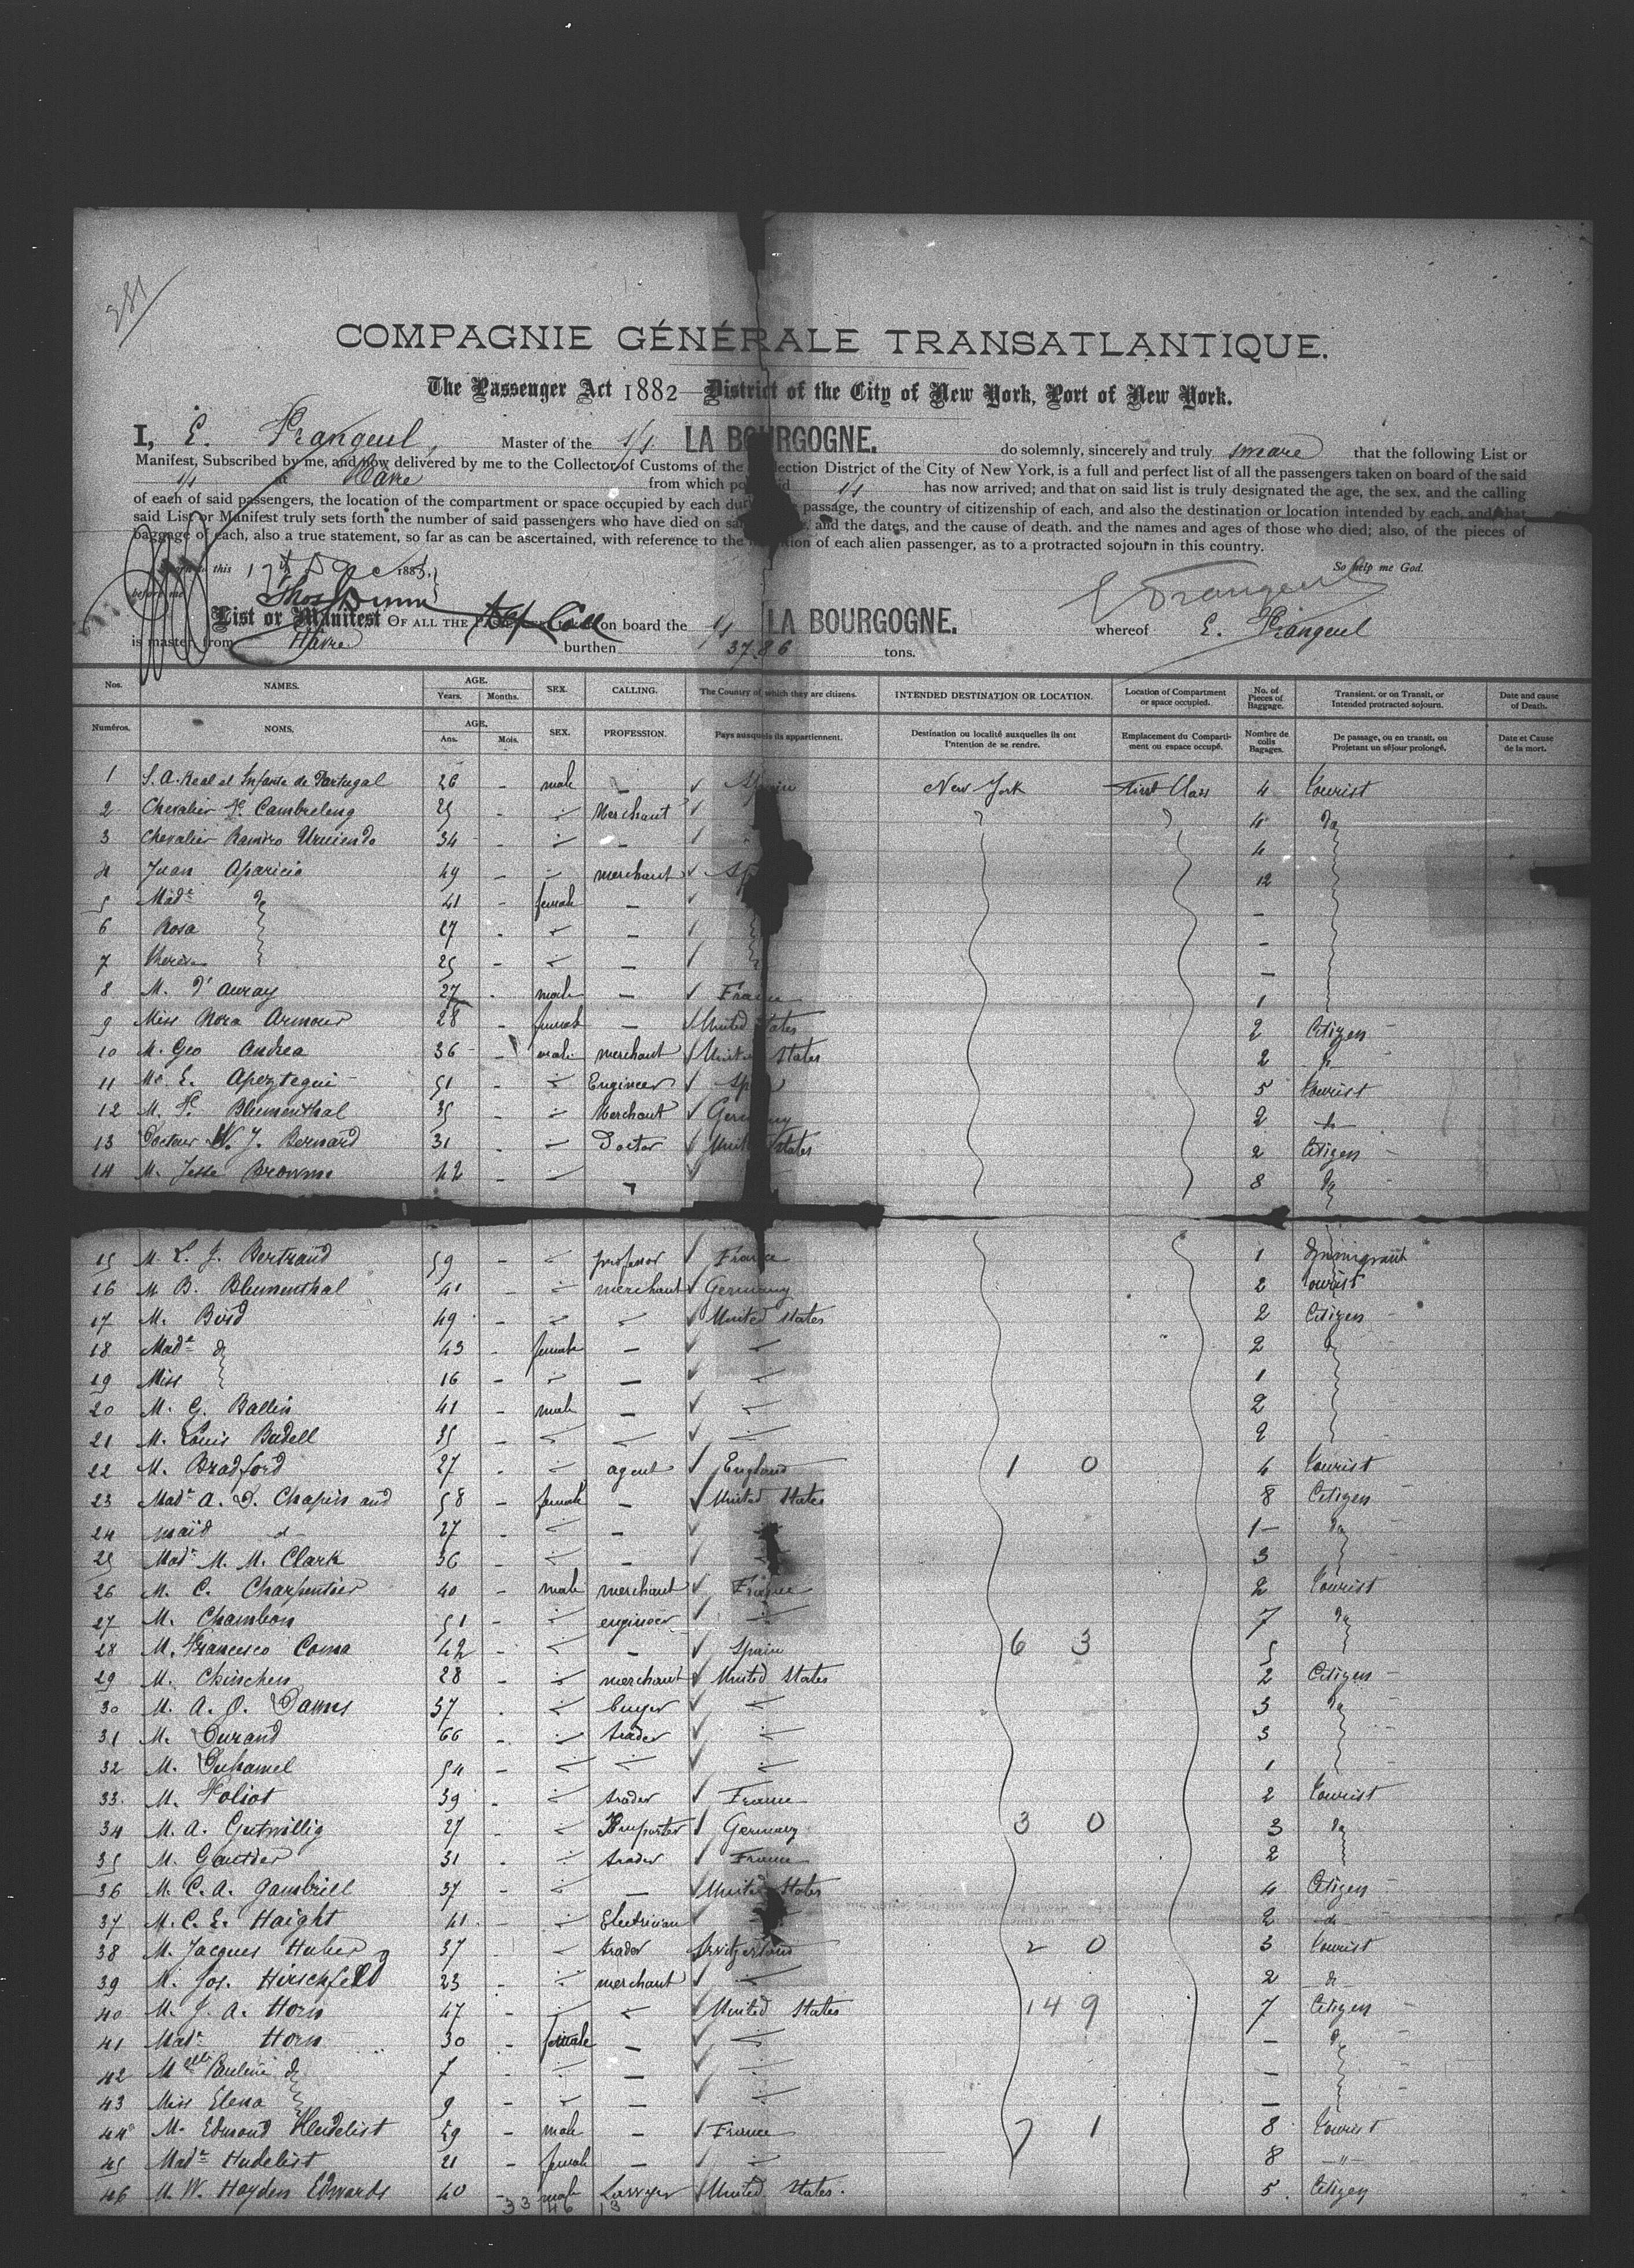 281
COMPAGNIE GÉNÉRALE TRANSATLANTIQUE.
The Passenger Act 1882 District of the City of New York, Port of New York.
I, E. Frangeul, Master of the S/S LA BOURGOGNE. do solemnly, sincerely and truly sweare that the following List or
Manifest, Subscribed by me, and now delivered by me to the Collector of Customs of the Collection District of the City of New York, is a full and perfect list of all the passengers taken on board of the said
S/S at Havre from which port said S/S has now arrived; and that on said list is truly designated the age, the sex, and the calling
of each of said passengers, the location of the compartment or space occupied by each during passage, the country of citizenship of each, and also the destination or location intended by each, and that
said List or Manifest truly sets forth the number of said passengers who have died on said and the dates, and the cause of death, and the names and ages of those who died; also, of the pieces of
baggage of each, also a true statement, so far as can be ascertained, with reference to the intention of each alien passenger, as to a protracted sojourn in this country.
this 17th Dec 188 So help me God.
before me E Frangeul
List or Manifest OF ALL THE on board the S/S LA BOURGOGNE. whereof E. Frangeul
is master, from Havre burthen 3786 tons.
Nos. NAMES. AGE. Years. Months. SEX. CALLING. The Country of which they are citizens. INTENDED DESTINATION OR LOCATION. Location of Compartment or space occupied. No. of Pieces of Baggage. Transient, or on Transit, or Intended protracted sojourn. Date and cause of Death.
Numéros. NOMS. AGE. Ans. Mois. SEX. PROFESSION. Pays auxquels ils appartiennent. Destination ou localité auxquelles ils ont l'intention de se rendre. Emplacement du Compartiment ou espace occupé. Nombre de colis Bagages. De passage, ou en transit, ou Projetant un séjour prolongé. Date et Cause de la mort.
1 S. A. Real el Infante de Portugal 26 male - Spain New York First Class 4 tourist
2 Chevalier F. Cambreleng 25 - Merchant 4 do
3 Chevalier Ramiro 34 - 4
4 Juan Aparicio 49 - merchant Sp 12
5 Made do 41 - female - -
6 Rosa 27 - - -
7 25 - - -
8 M. d'Auray 27 - male - France 1
9 Miss Nora Armour 28 - female - United States 2 Citizen
10 M. Geo Andrea 36 - male merchant United States 2 do
11 Mr E. Apeztegui 51 - Engineer Sp 5 tourist
12 M. F. Blumenthal 35 - Merchant Germany 2 do
13 Docteur W. J. Bernard 31 - Doctor United States 2 Citizen
14 M. Jesse Browne 42 - 8 do
15 M. L. J. Bertrand 59 - professor France 1 Immigrant
16 M B. Blumenthal 41 - merchant Germany 2 tourist
17 M. Boïd 49 - United States 2 Citizen
18 Made do 43 - female - 2 do
19 Miss 16 - - 1
20 M. G. Ballin 41 - male - 2
21 M. Louis Badell 35 - 2
22 M. Bradford 27 - agent England 1 0 4 tourist
23 Made A. D. Chapin and 58 - female - United States 8 Citizen
24 maid do 27 - - 1 do
25 Made M. M. Clark 36 - - 3
26 M. C. Charpentier 40 - male merchant France 2 tourist
27 M. Chambon 51 - engineer 7 do
28 M. Francesco Coma 42 - - Spain 6 3 5
29 M. Chinchen 28 - merchant United States 2 Citizen
30 M. A. O. Dames 37 - buyer 3 do
31 M. Durand 66 - trader 3
32 M. Duhamel 54 - 1
33 M. Foliot 39 - trader France 2 tourist
34 M. A. Gutwillig 27 - Importer Germany 3 0 3 do
35 M. Gautier 31 - trader France 2
36 M. C. A. Gambrill 37 - - United States 4 Citizen
37 M. C. E. Haight 41 - Electrician 2 do
38 M. Jacques Huber 37 - trader Switzerland 2 0 3 tourist
39 M. Jos. Hirschfeld 23 - merchant 2 do
40 M. J. A. Horn 47 - United States 149 7 Citizen
41 Made Horn 30 - female - - do
42 Melle Pauline do 7 - - -
43 Miss Elena 9 - - -
44 M. Edmond Hudelist 29 - male - France 7 1 8 tourist
45 Made Hudelist 21 - female - 8 "
46 M. W. Hayden Edwards 40 - male Lawyer United States. 5 Citizen
33 46 13